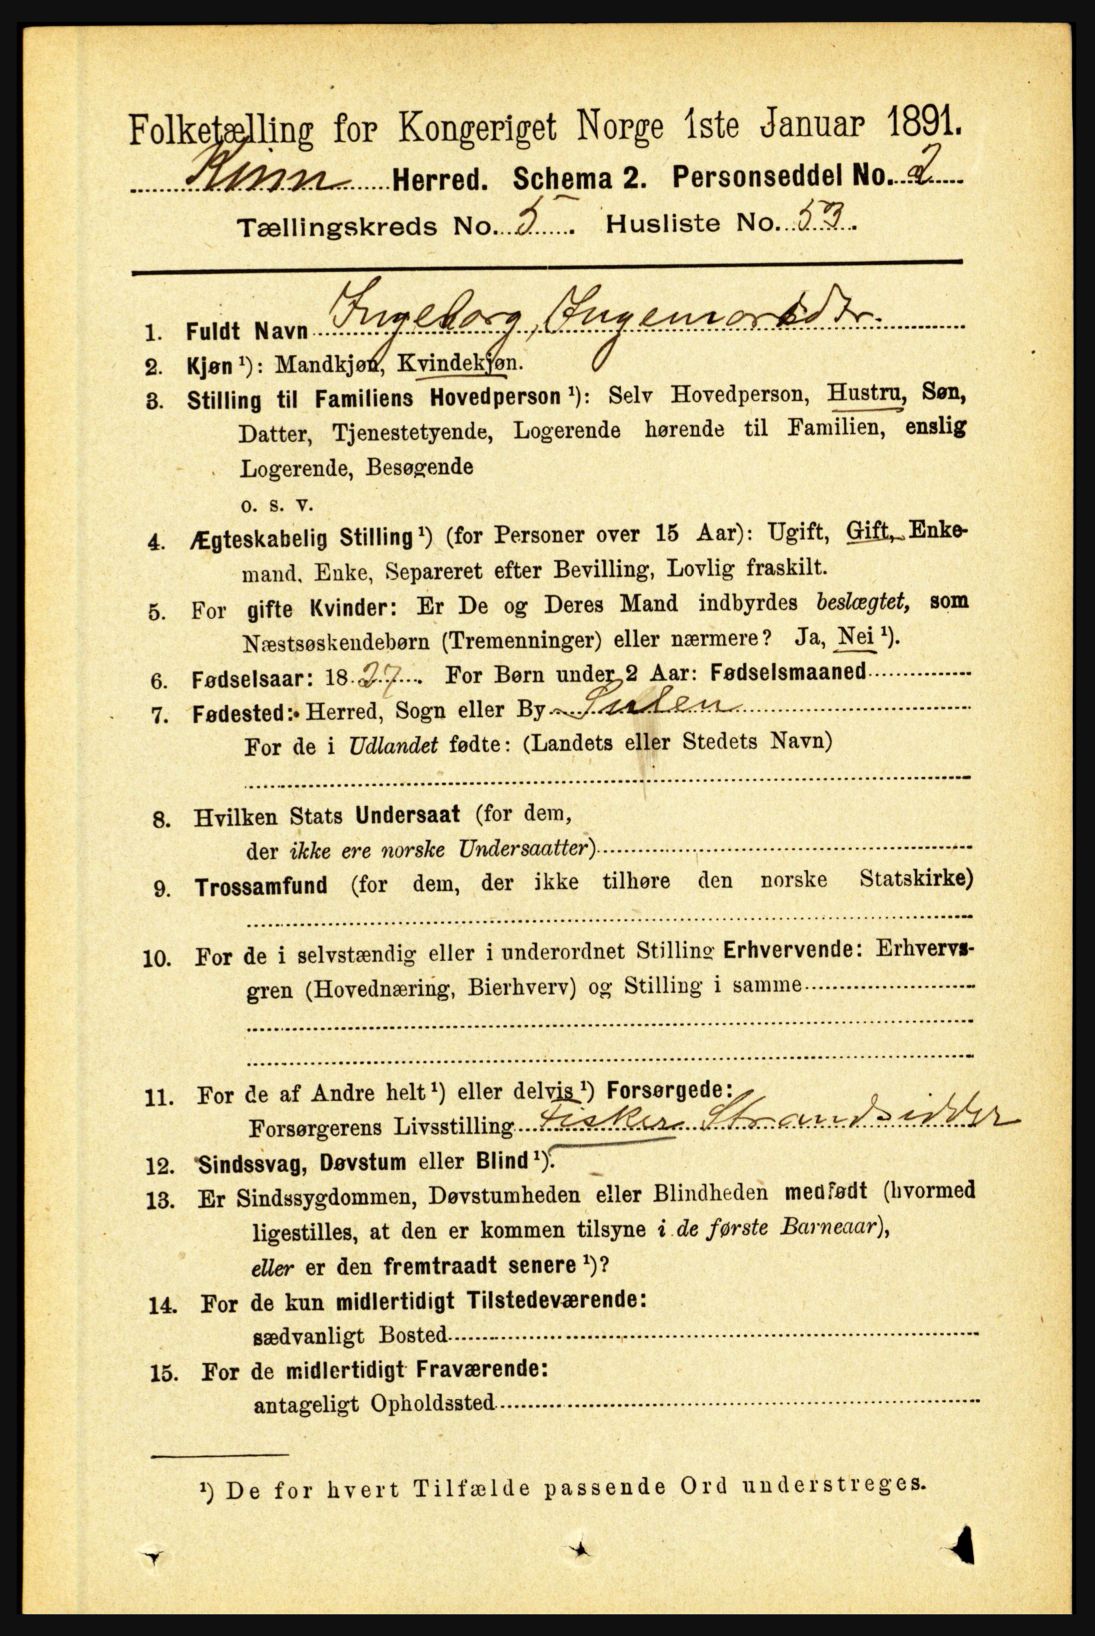 Folketælling for Kongeriget Norge 1ste Januar 1891.
Kinn Herred. Schema 2. Personseddel No. 2
Tællingskreds No. 5. Husliste No. 53.
1. Fuldt Navn Ingeborg Ingemorsdtr.
2. Kjøn ¹): Mandkjøn, Kvindekjøn.
3. Stilling til Familiens Hovedperson ¹): Selv Hovedperson, Hustru, Søn,
Datter, Tjenestetyende, Logerende hørende til Familien, enslig
Logerende, Besøgende
o. s. v.
4. Ægteskabelig Stilling ¹) (for Personer over 15 Aar): Ugift, Gift, Enke-
mand, Enke, Separeret efter Bevilling, Lovlig fraskilt.
5. For gifte Kvinder: Er De og Deres Mand indbyrdes beslægtet, som
Næstsøskendebørn (Tremenninger) eller nærmere? Ja, Nei ¹).
6. Fødselsaar: 1827. For Børn under 2 Aar: Fødselsmaaned
7. Fødested: Herred, Sogn eller By Sulen
For de i Udlandet fødte: (Landets eller Stedets Navn)
8. Hvilken Stats Undersaat (for dem,
der ikke ere norske Undersaatter)
9. Trossamfund (for dem, der ikke tilhøre den norske Statskirke)
10. For de i selvstændig eller i underordnet Stilling Erhvervende: Erhvervs-
gren (Hovednæring, Bierhverv) og Stilling i samme
11. For de af Andre helt ¹) eller delvis ¹) Forsørgede:
Forsørgerens Livsstilling Fisker Strandsidder
12. Sindssvag, Døvstum eller Blind ¹).
13. Er Sindssygdommen, Døvstumheden eller Blindheden medfødt (hvormed
ligestilles, at den er kommen tilsyne i de første Barneaar),
eller er den fremtraadt senere ¹)?
14. For de kun midlertidigt Tilstedeværende:
sædvanligt Bosted
15. For de midlertidigt Fraværende:
antageligt Opholdssted
¹) De for hvert Tilfælde passende Ord understreges.